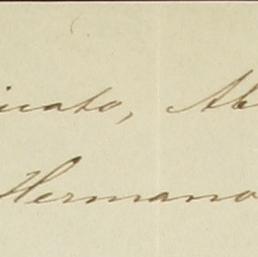 icato, Ab
Hermano